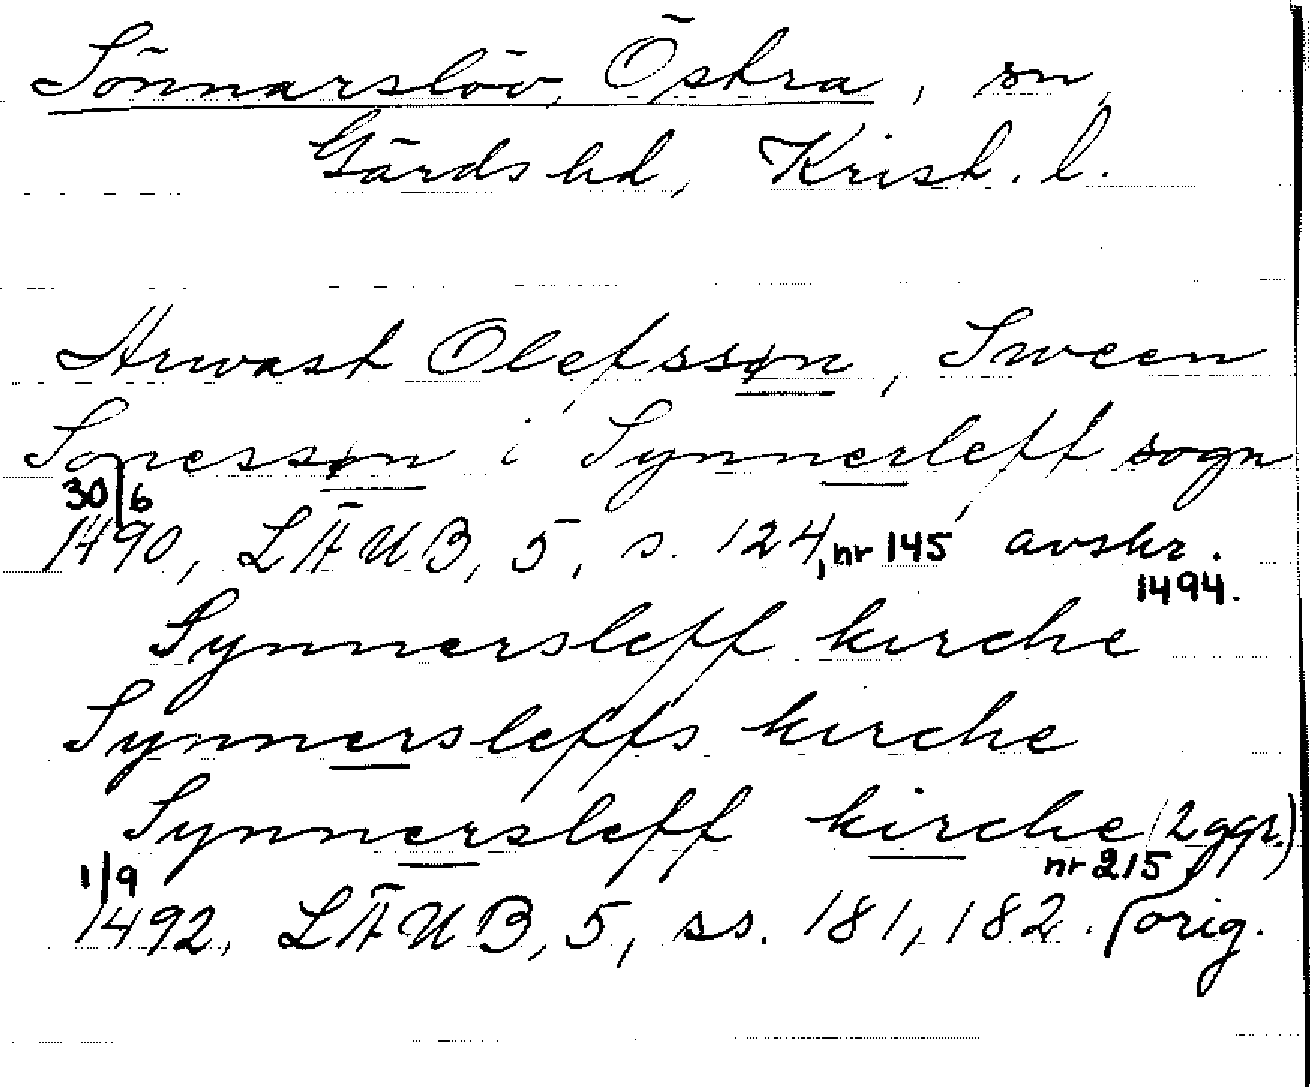 Sönnarslöv, Östra, sn,
Gärds hd, Krist. l.
Arwast Olefssøn, Sween
Sonessøn i Synnerleff sogn
30/6
1490, LÄUB, 5, s. 124, nr 145 avskr.
1494.
Synnersleff kirche
Synnersleffs kirche
Synnersleff kirche (2 ggr.)
1/9 nr 215
1492, LÄUB, 5, ss. 181, 182. orig.